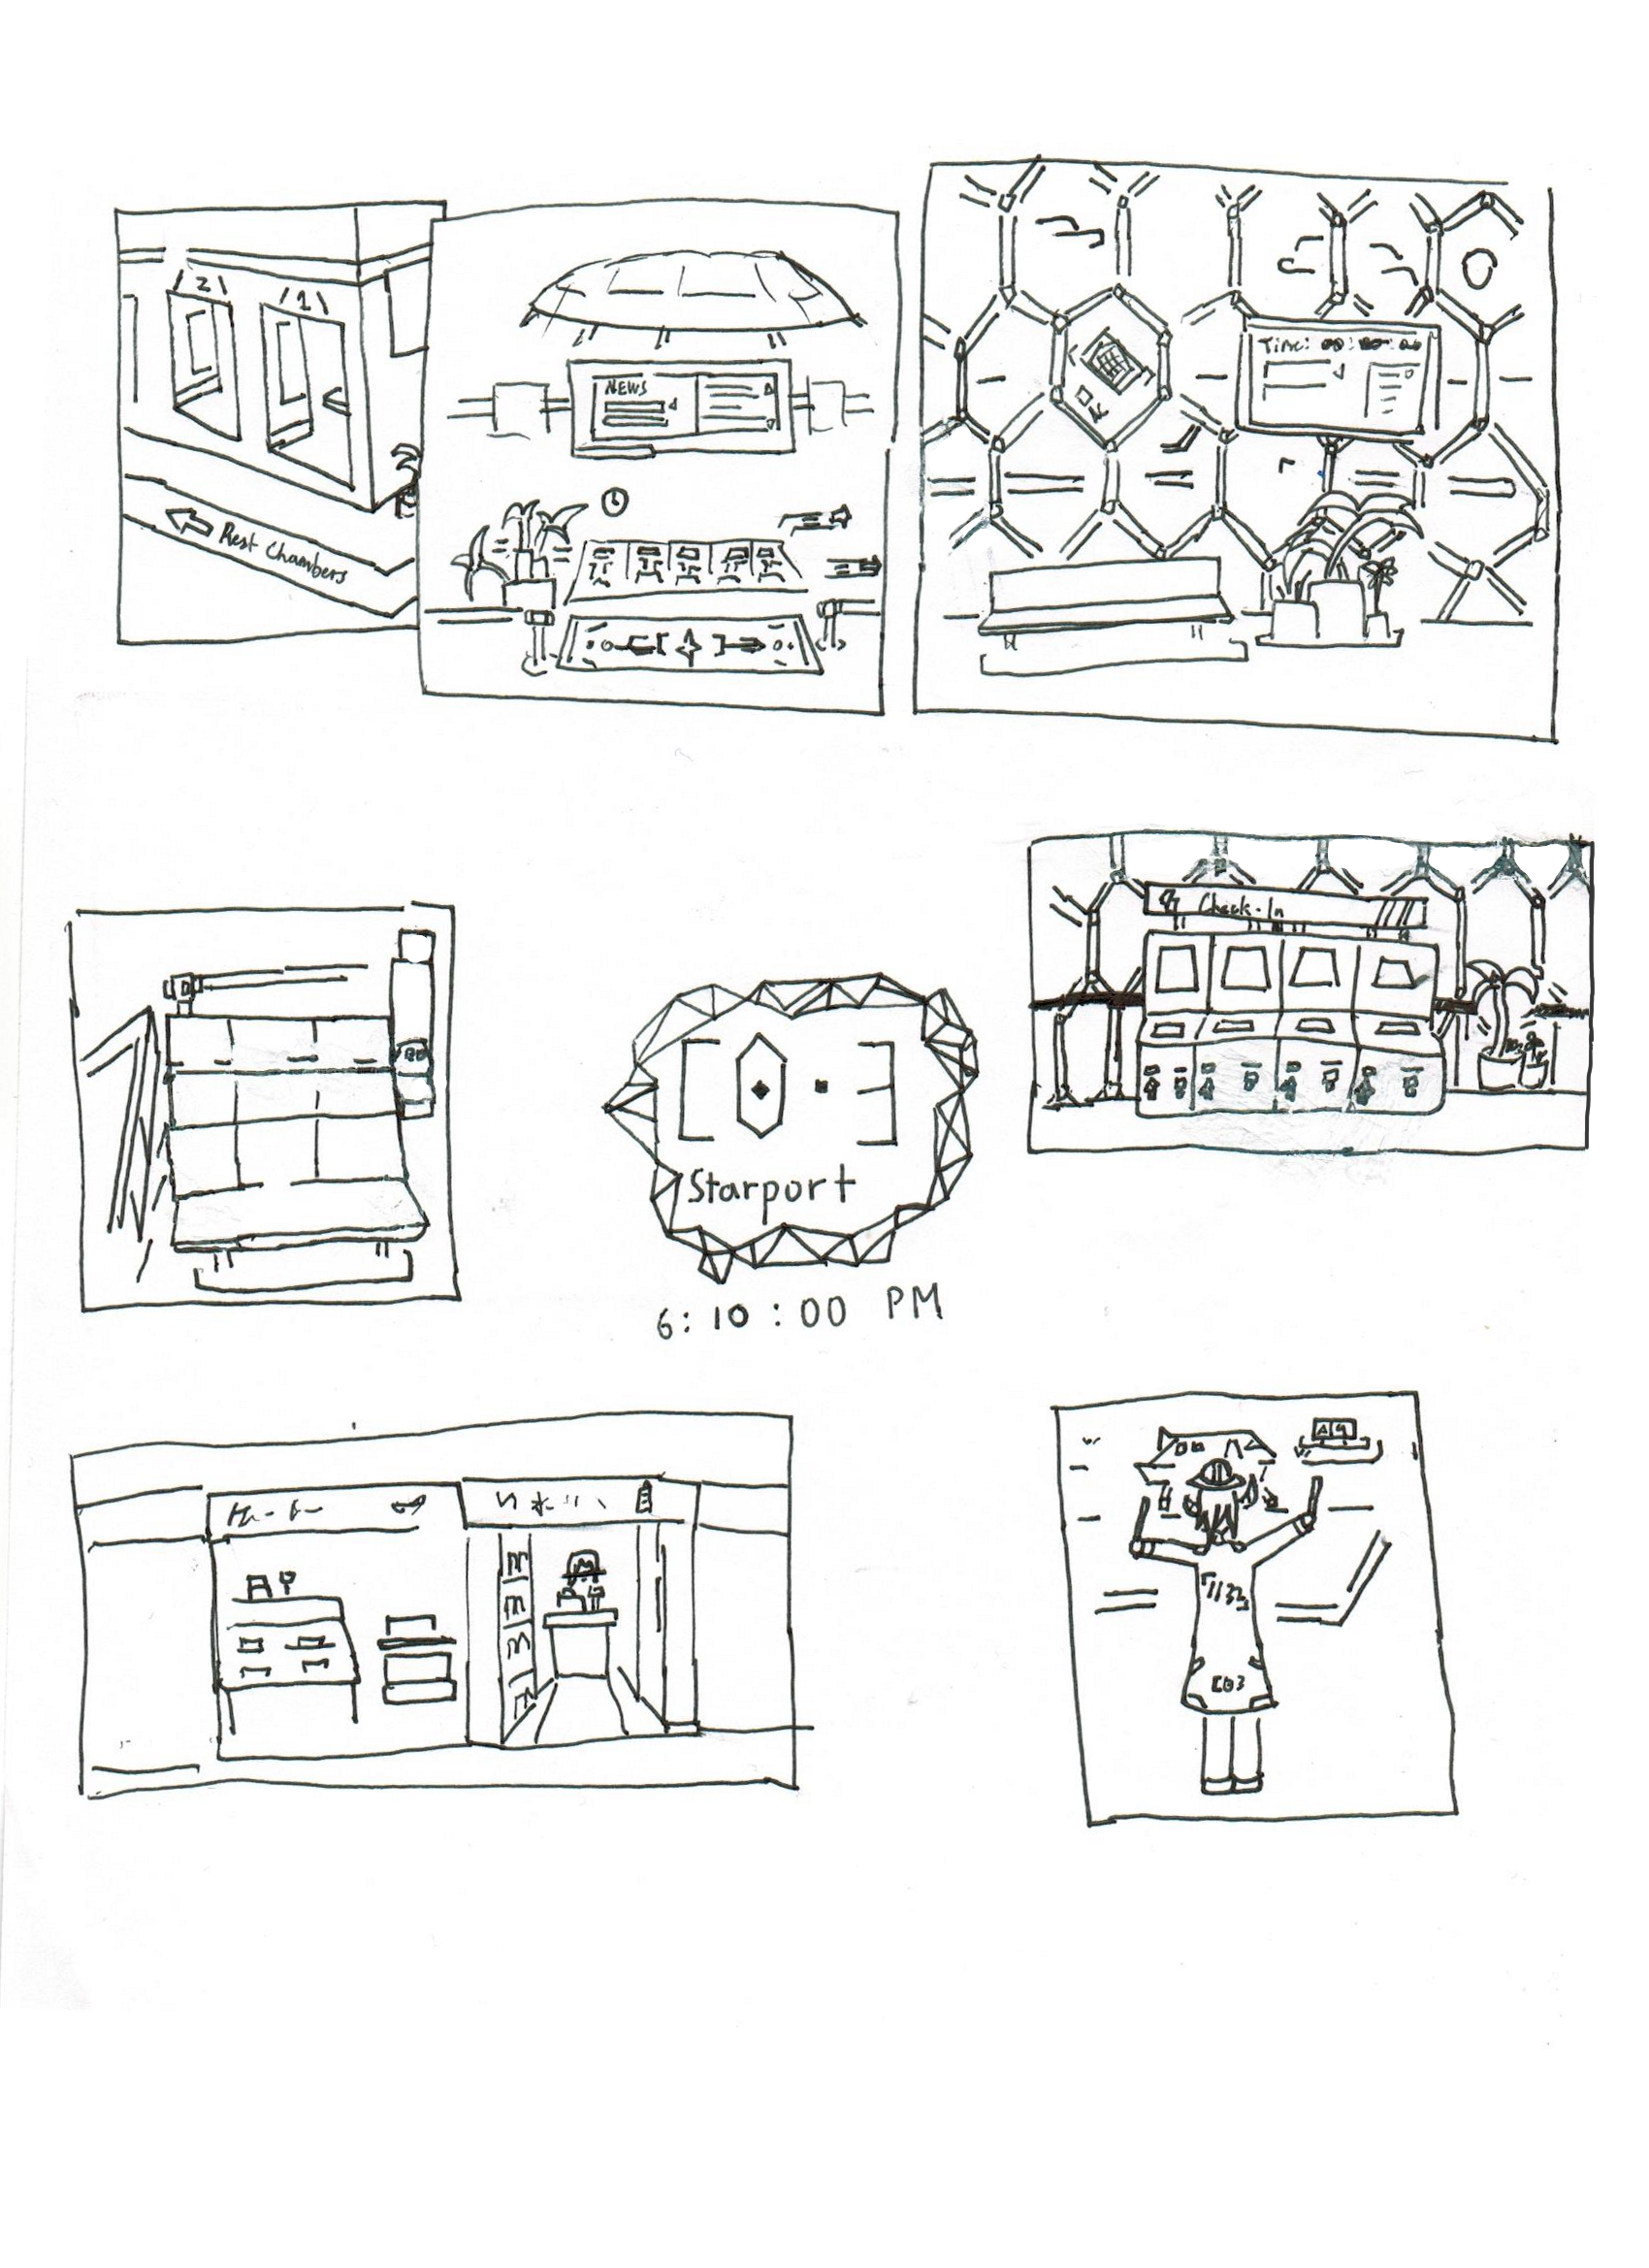 2
1
Rest Chambers
NEWS
Time: 00:00:00
Check-In
Starport
6:10:00 PM